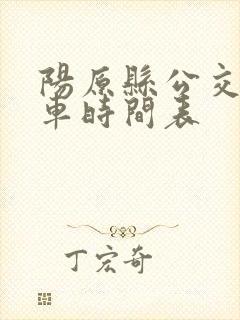 陽原縣公交
車時間表
丁宏奇